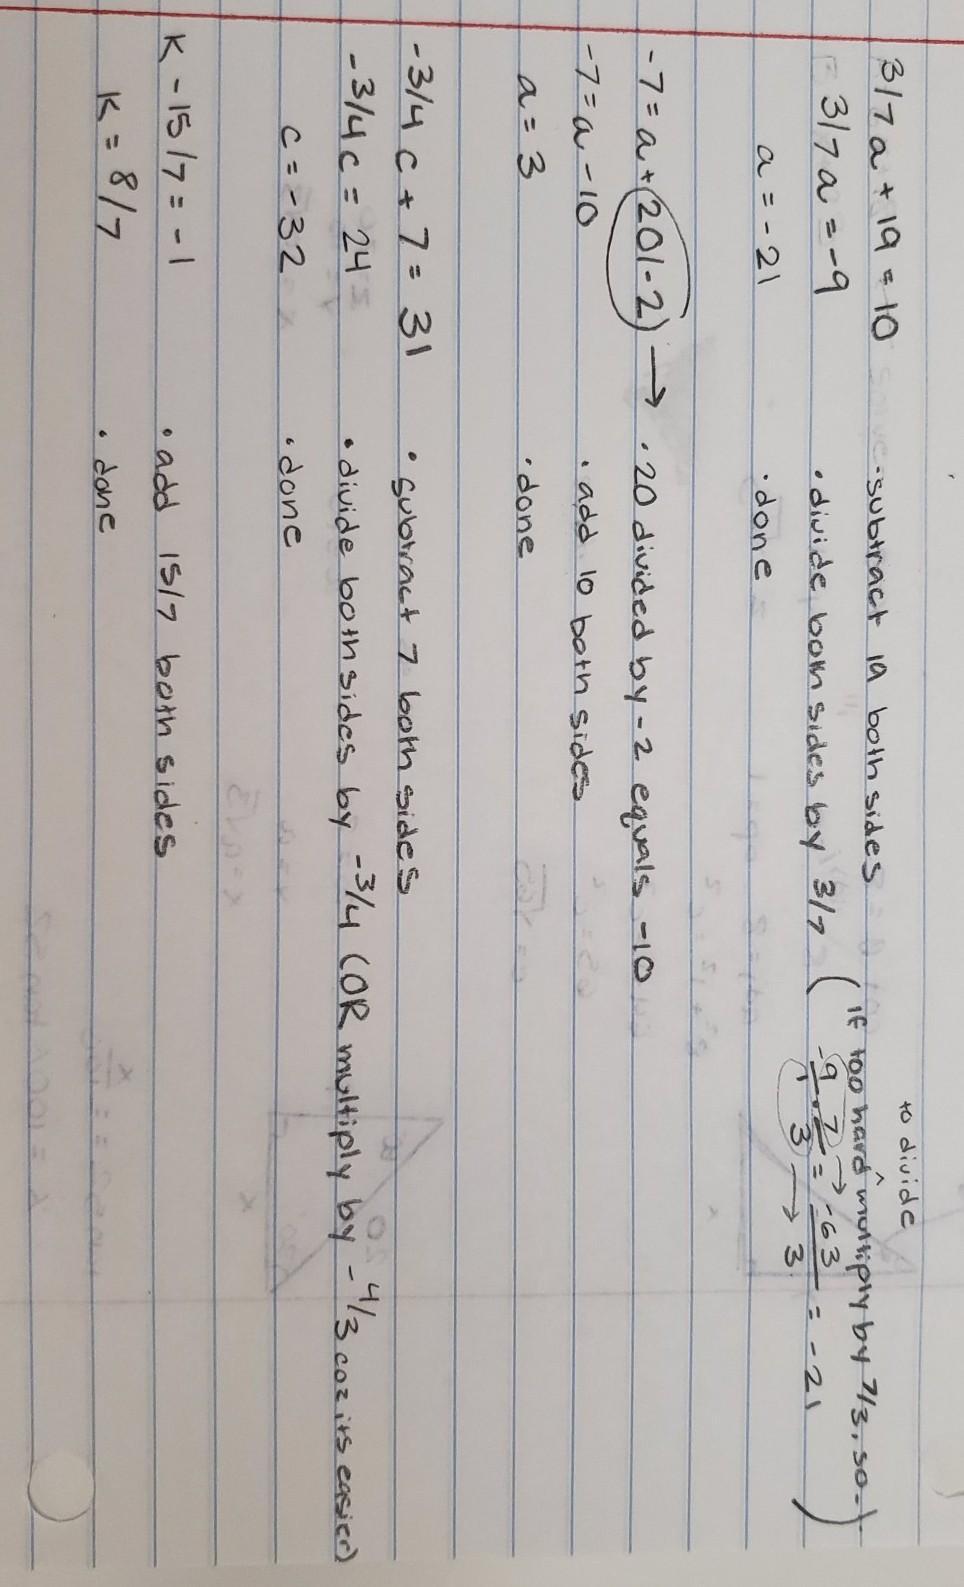 3/7 a + 19 = 10 · subtract 19 both sides
3/7 a = -9 · divide both sides by 3/7 (If too hard ^ to divide multiply by 7/3, so-)
-9/1 · 7/3 = -63/3 = -21)
a = -21 · done
-7 = a + (20/-2) → · 20 divided by -2 equals -10
-7 = a - 10 · add 10 both sides
a = 3 · done
-3/4 c + 7 = 31 · subtract 7 both sides
-3/4 c = 24 · divide both sides by -3/4 (OR multiply by -4/3 coz its easier)
c = -32 · done
K - 15/7 = -1 · add 15/7 both sides
K = 8/7 · done